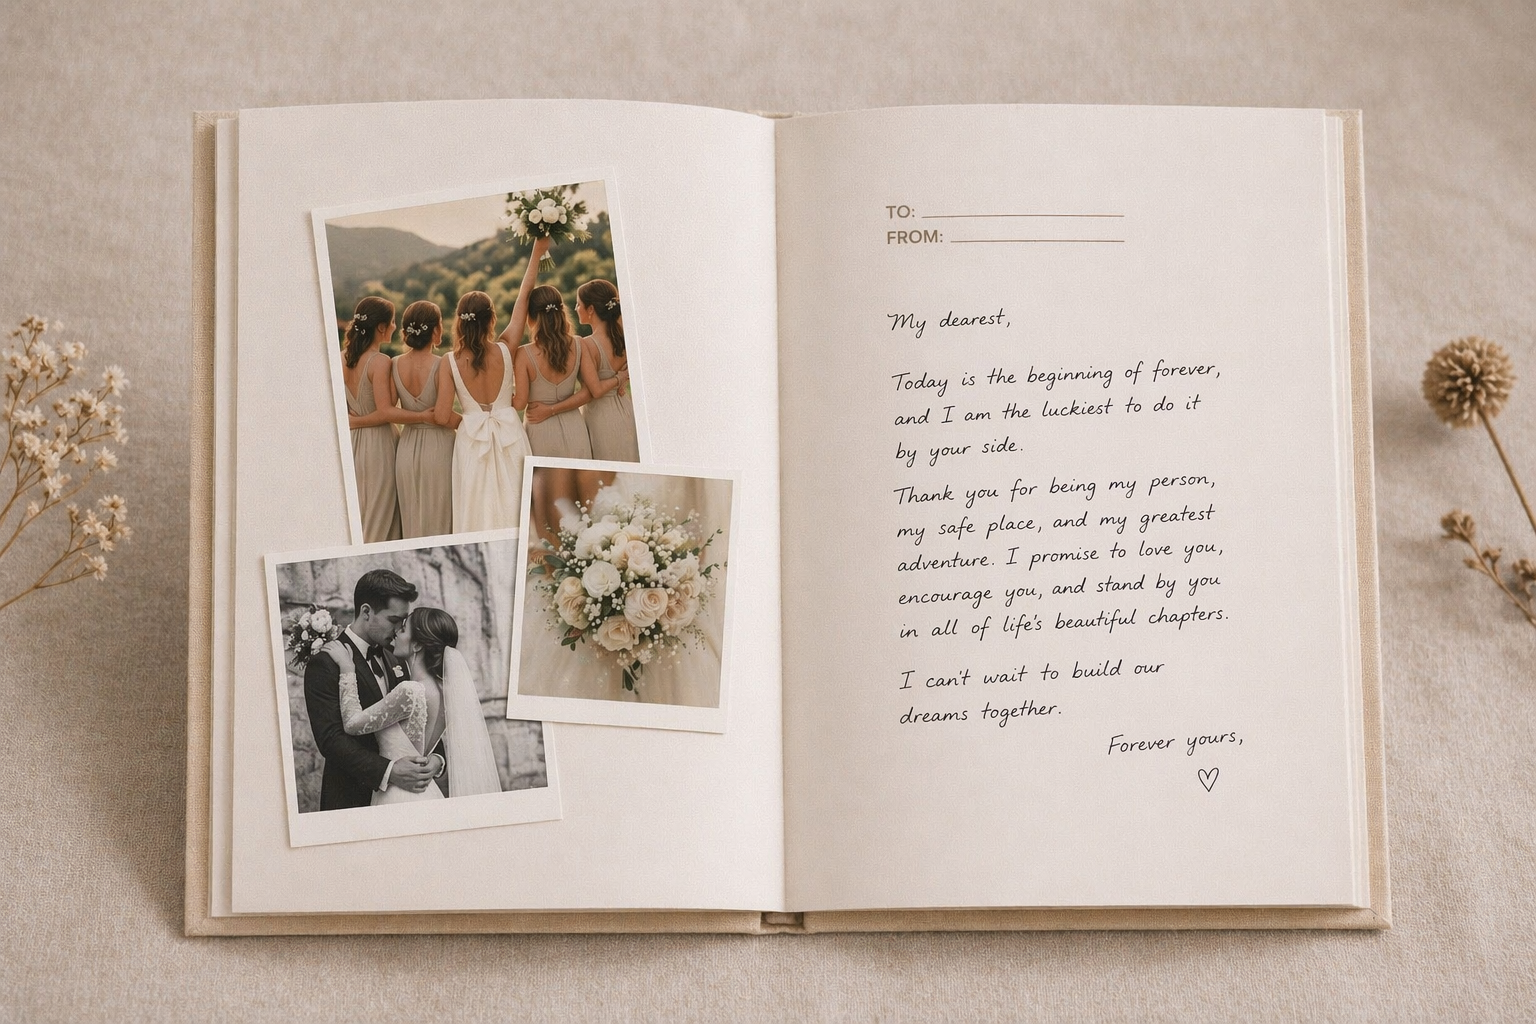 TO:
FROM:
My dearest,
Today is the beginning of forever,
and I am the luckiest to do it
by your side.
Thank you for being my person,
my safe place, and my greatest
adventure. I promise to love you,
encourage you, and stand by you
in all of life's beautiful chapters.
I can't wait to build our
dreams together.
Forever yours,